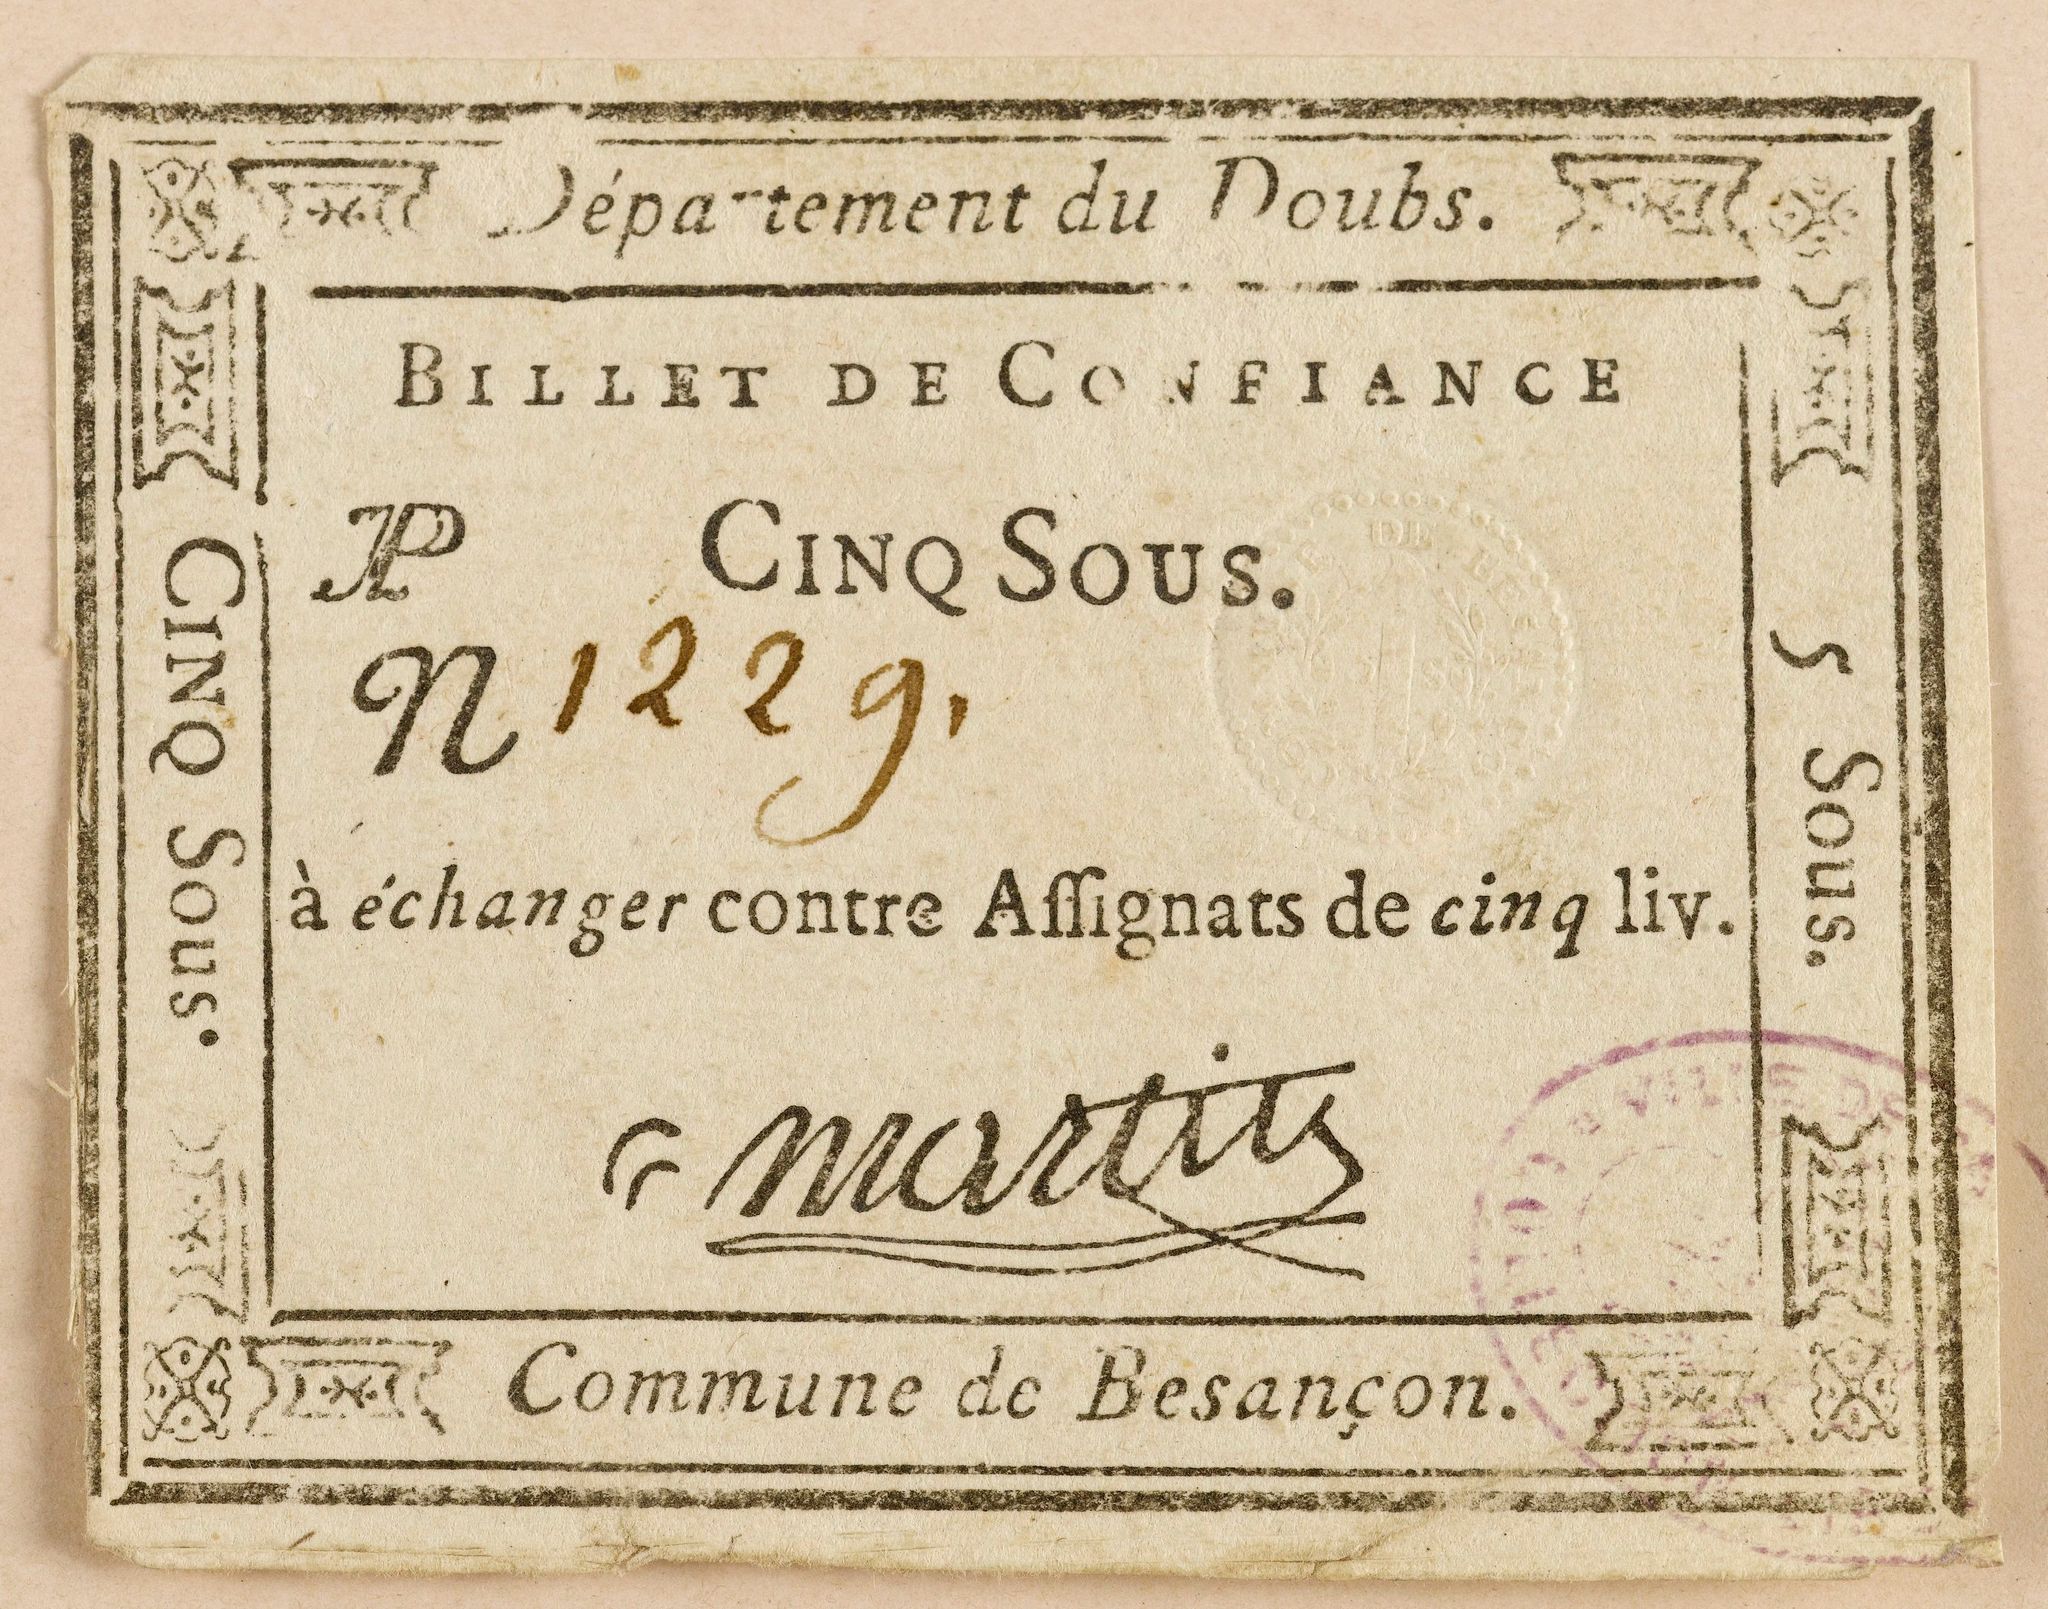 Département du Doubs.
BILLET DE CONFIANCE
P CINQ SOUS.
N 1229.
à échanger contre Aſſignats de cinq liv.
martin
Commune de Besançon.
CINQ SOUS.
5 SOUS.
VILLE DE